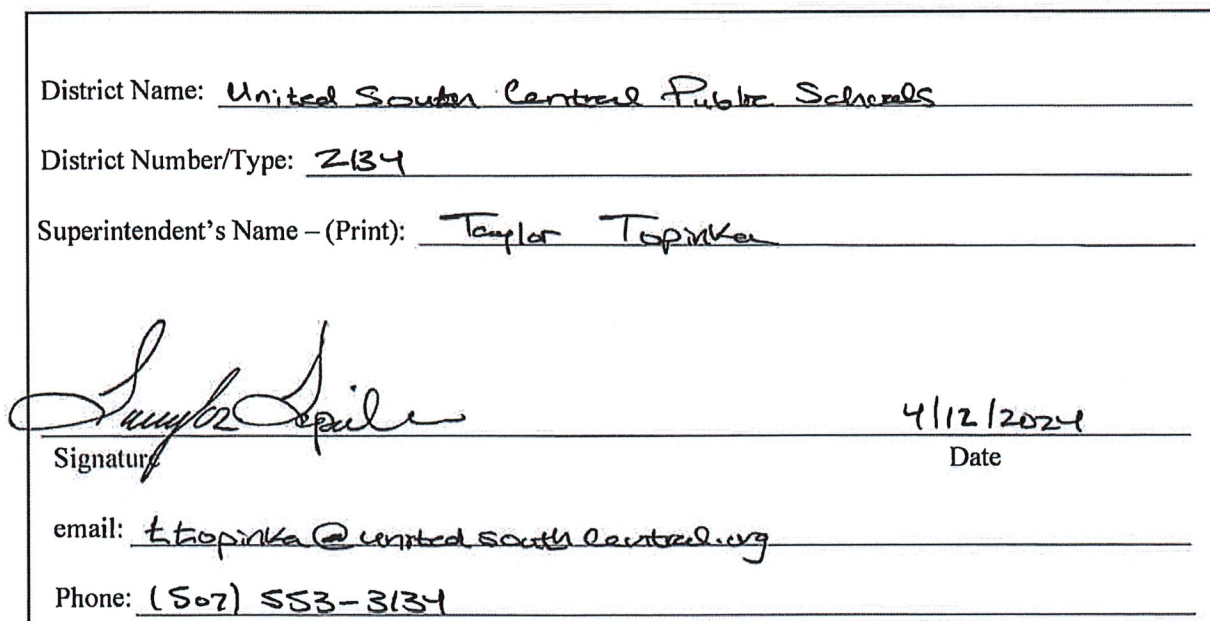 District Name: United South Central Public Schools
District Number/Type: 2134
Superintendent's Name – (Print): Taylor Topinka
Taylor Topinka 4/12/2024
Signature Date
email: ttopinka@unitedsouthcentral.org
Phone: (507) 553-3134